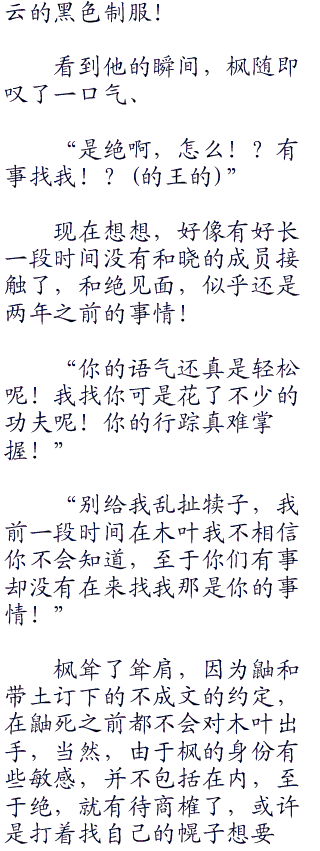 云的黑色制服！
看到他的瞬间，枫随即
叹了一口气、
“是绝啊，怎么！？有
事找我！？(的王的)”
现在想想，好像有好长
一段时间没有和晓的成员接
触了，和绝见面，似乎还是
两年之前的事情！
“你的语气还真是轻松
呢！我找你可是花了不少的
功夫呢！你的行踪真难掌
握！”
“别给我乱扯犊子，我
前一段时间在木叶我不相信
你不会知道，至于你们有事
却没有在来找我那是你的事
情！”
枫耸了耸肩，因为鼬和
带土订下的不成文的约定，
在鼬死之前都不会对木叶出
手，当然，由于枫的身份有
些敏感，并不包括在内，至
于绝，就有待商榷了，或许
是打着找自己的幌子想要